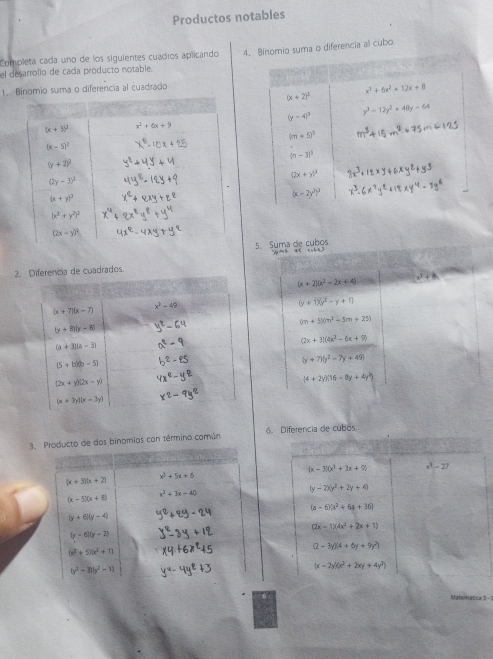 Productos notables
Completa cada uno de los siguientes cuadros aplicando
el desarrollo de cada producto notable.
1. Binomio suma o diferencia al cuadrado
(x + 3)² x² + 6x + 9
(x - 5)² x² - 10x + 25
(y + 2)² y² + 4y + 4
(2y - 3)² 4y² - 12y + 9
(x + y)² x² + 2xy +
(x² + y²)² x⁴ + 2x²y² + y⁴
(2x - y)² 4x² - 4xy + y²
2. Diferencia de cuadrados
(x + 7)(x - 7) x² - 49
(y + 8)(y - 8) y² - 64
(a + 3)(a - 3) a² - 9
(5 + b)(b - 5) b² - 25
(2x + y)(2x - y) 4x² - y²
(x + 3y)(x - 3y) x² - 9y²
3. Producto de dos binomios con término común
(x + 3)(x + 2) x² + 5x + 6
(x - 5)(x + 8) x² + 3x - 40
(y + 6)(y - 4) y² + 2y - 24
(y - 6)(y - 2) y² - 8y + 12
(x² + 5)(x² + 1) x4 + 6x² + 5
(y² - 3)(y² - 1) y⁴ - 4y² + 3
4. Binomio suma o diferencia al cubo
(x + 2)³ x³ + 6x² + 12x + 8
(y - 4)³ y³ - 12y² + 48y - 64
(m + 5)³ m³ + 15m² + 75m + 125
(n - 3)³
(2x + y)³ + 12xy + 6xy² + y3
(x - 2y²)³
5. Suma de cubos
suma de cubos
(x + 2)(x² - 2x + 4) x³ + 8
(y + 1)(y² - y + 1)
(m + 5)(m² - 5m + 25)
(2x + 3)(4x² - 6x + 9)
(y + 7)(y² - 7y + 49)
(4 + 2y)(16 - 8y + 4y²)
6. Diferencia de cubos
(x - 3)(x² + 3x + 9) x³ - 27
(y - 2)(y² + 2y + 4)
(a - 6)(a² + 6a + 36)
(2x - 1)(4x² + 2x + 1)
(2 - 3y)(4 + 6y + 9y²)
(x - 2y)(x² + 2xy + 4y²)